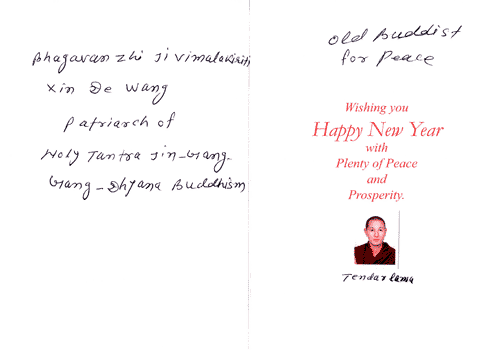 Bhagavan Zhi Ji Vimalakirti
Xin De Wang
Patriarch of
Holy Tantra Jin-Gang-
Gang-Dhyana Buddhism
Old Buddist
for Peace
Wishing you
Happy New Year
with
Plenty of Peace
and
Prosperity.
Tendar Lama